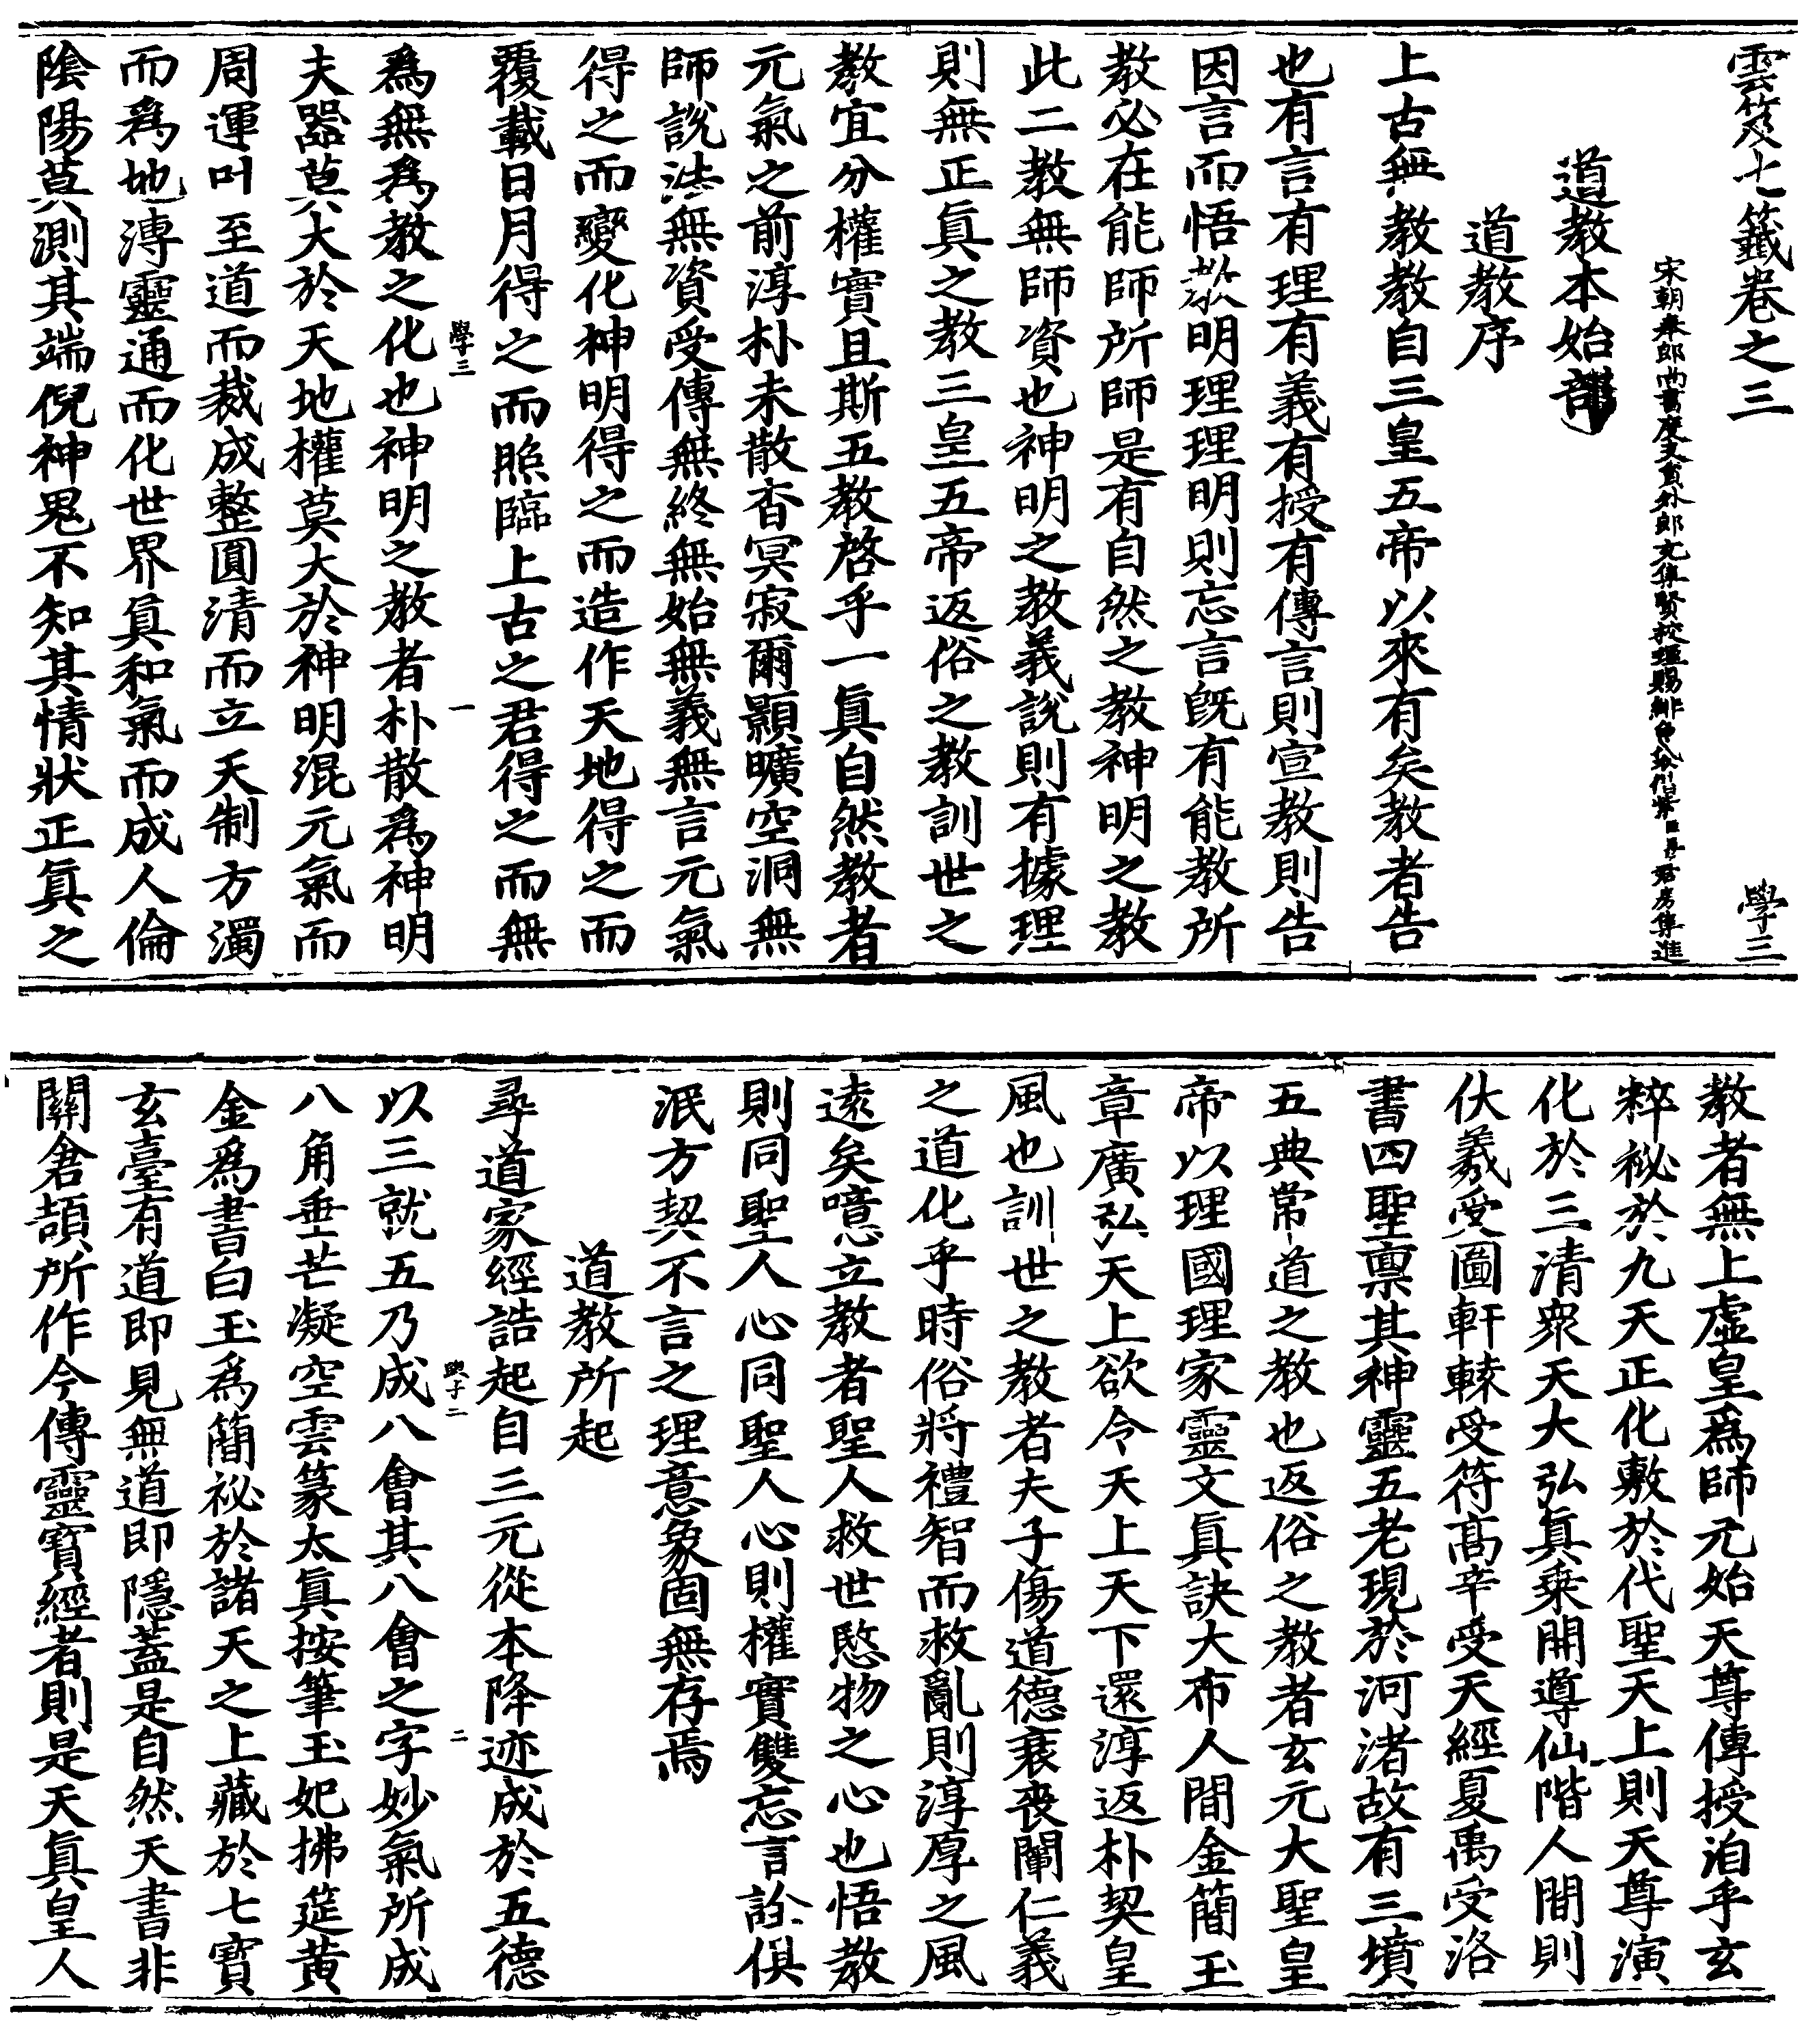 雲笈七籤卷之三
學三
宋朝奉郎尚書度支員外郎充集賢校理賜緋魚袋借紫臣張君房集進
道教本始部
道教序
上古無教教自三皇五帝以來有矣教者告
也有言有理有義有授有傳言則宣教則告
因言而悟教明理理明則忘言旣有能教所
教必在能師所師是有自然之教神明之教
此二教無師資也神明之教義說則有據理
則無正眞之教三皇五帝返俗之教訓世之
教宜分權實且斯五教啓乎一眞自然教者
元氣之前淳朴未散杳冥寂爾顥曠空洞無
師說法無資受傳無終無始無義無言元氣
得之而變化神明得之而造作天地得之而
覆載日月得之而照臨上古之君得之而無
學三
一
爲無爲教之化也神明之教者朴散爲神明
夫器莫大於天地權莫大於神明混元氣而
周運叶至道而裁成整圓清而立天制方濁
而爲地漙靈通而化世界眞和氣而成人倫
陰陽莫測其端倪神鬼不知其情狀正眞之
教者無上虛皇爲師元始天尊傳授洎乎玄
粹祕於九天正化敷於代聖天上則天尊演
化於三清衆天大弘眞乘開導仙階人間則
伏羲受圖軒轅受符高辛受天經夏禹受洛
書四聖禀其神靈五老現於河渚故有三墳
五典常道之教也返俗之教者玄元大聖皇
帝以理國理家靈文眞訣大布人間金簡玉
章廣弘天上欲令天上天下還淳返朴契皇
風也訓世之教者夫子傷道德衰喪闡仁義
之道化乎時俗將禮智而救亂則淳厚之風
遠矣噫立教者聖人救世愍物之心也悟教
則同聖人心同聖人心則權實雙忘言詮俱
泯方契不言之理意象固無存焉
道教所起
尋道家經誥起自三元從本降迹成於五德
二
以三就五乃成八會其八會之字妙氣所成
八角垂芒凝空雲篆太眞按筆玉妃拂筵黃
金爲書白玉爲簡祕於諸天之上藏於七寶
玄臺有道即見無道即隱蓋是自然天書非
關倉頡所作今傳靈寶經者則是天眞皇人